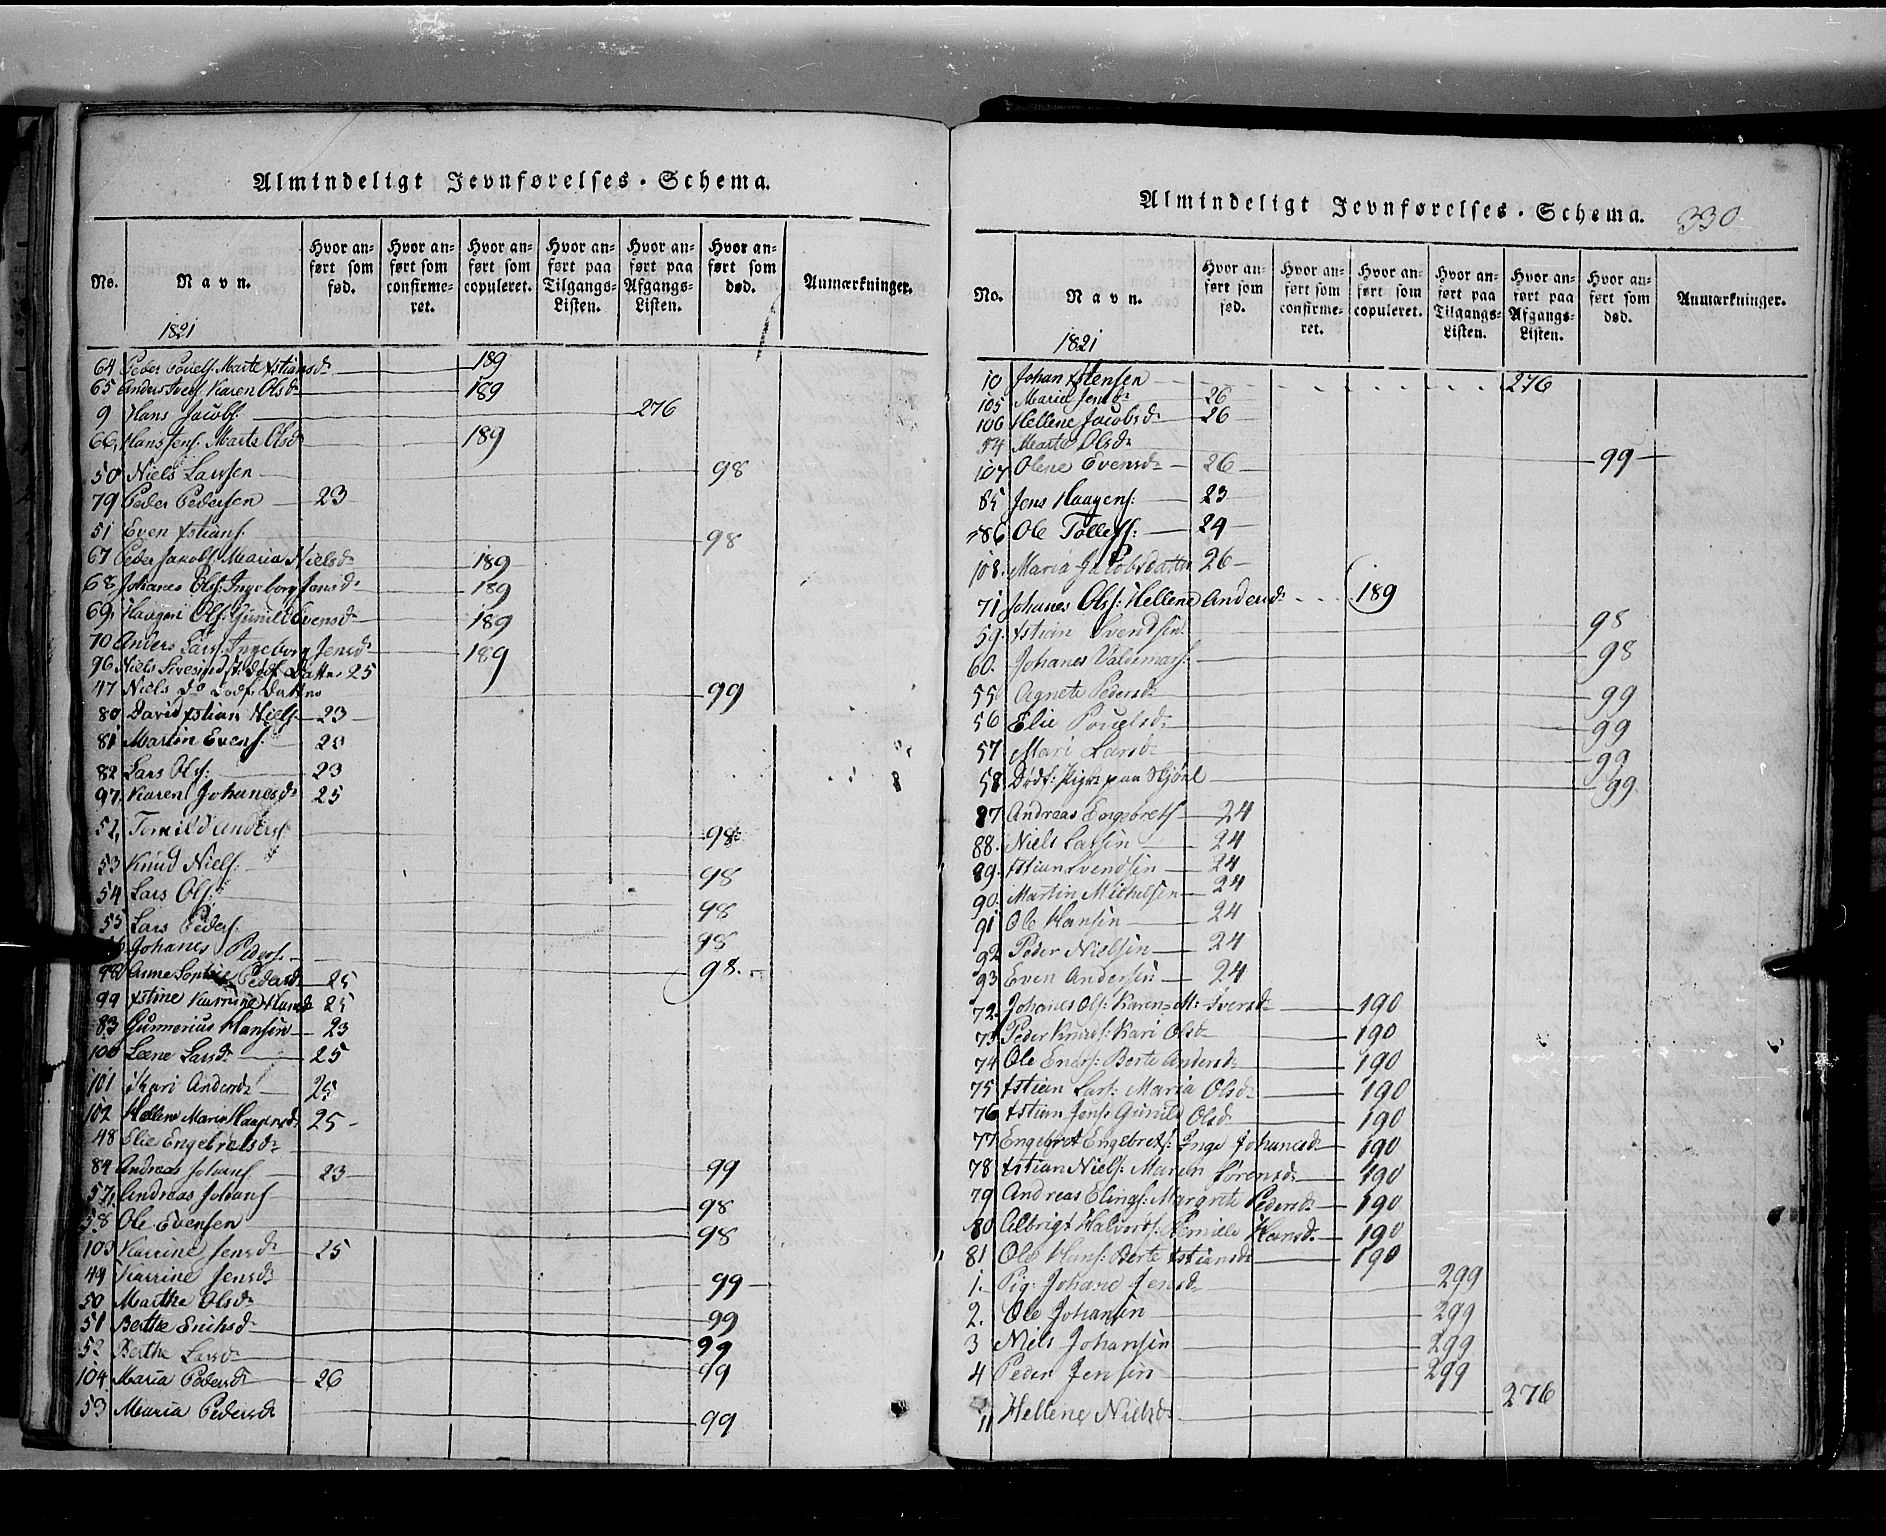 Almindeligt Jevnførelses-Schema.
No. Navn. Hvor anført som fød. Hvor anført som confirmeret. Hvor anført som copuleret. Hvor anført paa Tilgangs-Listen. Hvor anført paa Afgangs-Listen. Hvor anført som død. Anmærkninger.
1821
64 Peder Povels. Marte Xstiansd. 189
65 Anders Ivers. Karen Olsd. 189
9 Hans Jacobs. 276
66, Hans Jens. Marte Olsd. 189
50 Niels Larssen 98
79 Peder Pedersen 23
51 Even Xstians. 98
67 Peder Jacobs. Maria Nielsd. 189
68 Johanes Ols. Ingeborg Jensd. 189
69, Haagen Ols. Gunild Evensd. 189
70 Anders Lars. Ingeborg Jensd. 189
96 Niels Dødf. Datter 25
47 Niels Do Dødf. Datter 99
80 David Xstian Niels. 23
81 Martin Evens. 23
82 Lars Ols: 23
97, Karen Johanesd. 25
52, Anders. 98
53 Knud Niels. 98
54 Lars Ols. 98
55 Lars Peders. 98
56 Johanes Peders. 98.
98 Anne Sophie Pedersd. 25
99 Xstine Karrine Hansd. 25
83 Gunnerius Hansen 23
100 Leene Larsd. 25
101 Kari Andersd. 25
102 Hellene Maria Haagensd. 25
48 Elie Engebretsd. 99
84 Andreas Johans. 23
57, Andreas Johans. 98
58 Ole Evensen 98
103 Karrine Jensd. 25
49 Karrine Jensd. 99
50 Marthe Olsd. 99
51 Berthe Erichsd. 99
52 Berthe Larsd. 99
104 Maria Pedersd. 26
53 Maria Pedersd. 99
Almindeligt Jevnførelses-Schema. 330
No. Navn. Hvor anført som fød. Hvor anført som confirmeret. Hvor anført som copuleret. Hvor anført paa Tilgangs-Listen. Hvor anført paa Afgangs-Listen. Hvor anført som død. Anmærkninger.
1821
10 Johan Xstensen 276
105 Maria Jensd. 26
106 Hellene Jacobsd. 26
54 Marte Olsd. 99
107 Olene Evensd. 26
85 Jens Haagens. 23
86 Ole Tollefs: 24
108. Maria Jacobsdatter 26
71 Johanes Ols: Hellene Andersd. 189
59. Xstian Svendsen 98
60. Johanes Valdemars. 98
55 Agnete Pedersd. 99
56 Elie Povelsd. 99
57 Mari Larsd. 99
58 Dødf: Pige paa 99
87 Andreas Engebrets. 24
88. Niels Larsen 24
89. Xstian Svendsen 24
90. Martin Michelsen 24
91 Ole Hansen 24
92 Peder Nielsen 24
93 Even Andersen 24
72. Johanes Ols: Karen M: Iversd. 190
73 Peder Knuds: Kari Olsd. 190
74 Ole Eners: Berte Andersd. 190
75 Xstian Lars: Maria Olsd. 190
76 Xstian Jens: Gunild Olsd. 190
77 Engebret Engebrets: Inge Johanesd. 190
78 Xstian Niels: Maren Sørensd. 190
79 Andreas Elings: Margrete Pedersd. 190
80 Albrigt Halvors: Hansd. 190
81 Ole Hans: Berte Xstiansd. 190
1. Pig: Johane Jensd. 299
2. Ole Johansen 299
3 Niels Johansen 299
4 Peder Jensen 299
11 Hellene Nielsd. 276